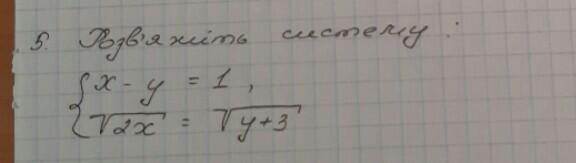 5. Розв'яжіть систему:
{ x - y = 1,
√2x = √y+3